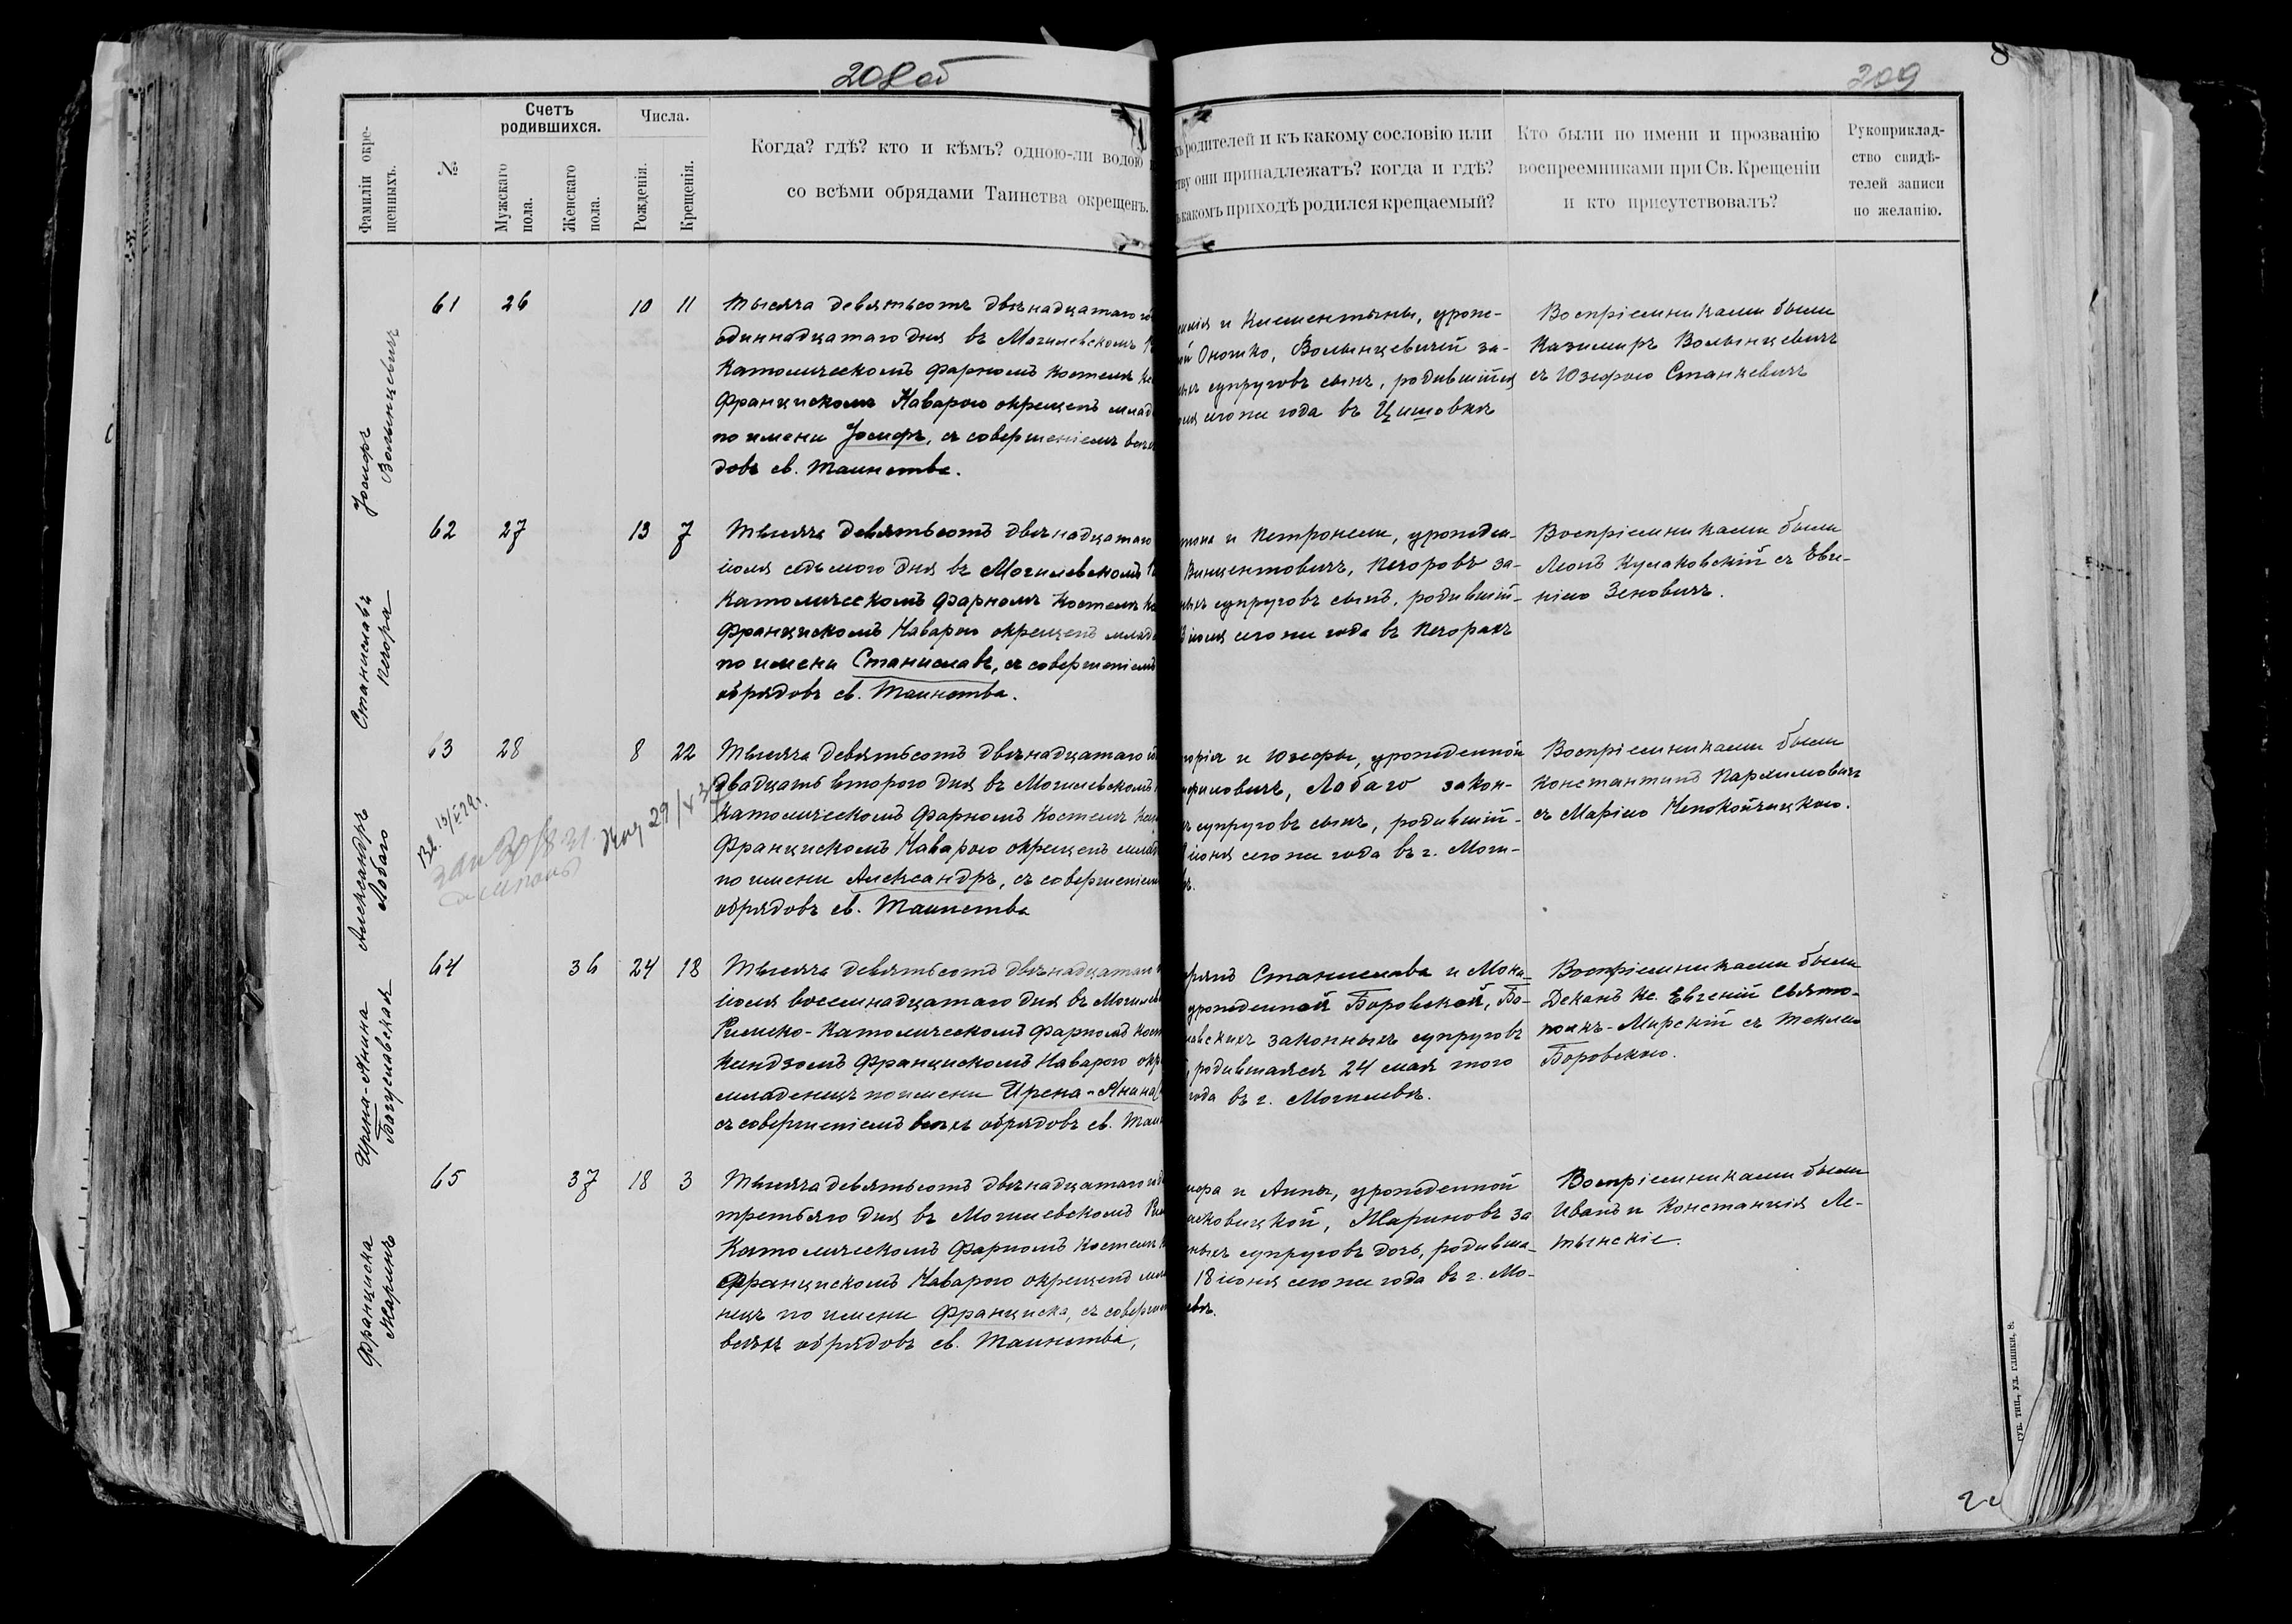 208 об
209
8
Фамиліи окре-
щенныхъ.
№
Счетъ
родившихся.
Мужскаго
пола.
Женскаго
пола.
Числа.
Рожденія.
Крещенія.
Когда? гдѣ? кто и кѣмъ? одною-ли водою
со всѣми обрядами Таинства окрещенъ.
родителей и къ какому сословію или
они принадлежатъ? когда и гдѣ?
какомъ приходѣ родился крещаемый?
Кто были по имени и прозванію
воспреемниками при Св. Крещеніи
и кто присутствовалъ?
Рукоприклад-
ство свидѣ-
телей записи
по желанію.
Іосифъ
Волынцевичъ
61 26 10 11
Тысяча девятьсотъ двѣнадцатаго
одиннадцатаго дня въ Могилевскомъ
Католическомъ фарномъ костелѣ
Францискомъ Каварою окрещенъ млад
по имени Іосифъ, съ совершеніемъ всѣхъ
довъ св. Таинства.
и Климентины, урож-
Оношко, Волынцевичей за-
супруговъ сынъ, родившійся
сего же года въ Цишовкѣ
Воспріемниками были
Казимиръ Волынцевичъ
съ Юзефою Станкевичъ
Станиславъ
Печора
62 27 13 7
Тысяча девятьсотъ двѣнадцатаго
іюля седьмого дня въ Могилевскомъ
Католическомъ фарномъ костелѣ
Францискомъ Каварою окрещенъ млад
по имени Станиславъ, съ совершеніемъ
обрядовъ св. Таинства.
и Петронели, урожден-
Винцентовичъ, Печоровъ за-
супруговъ сынъ, родившій-
сего же года въ Печорахъ
Воспріемниками были
Леонъ Кулаковскій съ Евге-
ніею Зеновичъ.
Александръ
Лобаго
63 28 8 22
Тысяча девятьсотъ двѣнадцатаго
двадцать второго дня въ Могилевскомъ
Католическомъ фарномъ костелѣ
Францискомъ Каварою окрещенъ млад
по имени Александръ, съ совершеніемъ
обрядовъ св. Таинства
и Юзефы, урожденной
Лобаго закон-
супруговъ сынъ, родившій-
іюня сего же года въ г. Моги-
Воспріемниками были
Константинъ Пархимовичъ
съ Маріею Непокойчицкою.
Ирена-Янина
Богуславская
64 36 24 18
Тысяча девятьсотъ двѣнадцатаго
іюля восемнадцатаго дня въ Могилев
Римско-Католическомъ фарномъ кост
Ксендзомъ Францискомъ Каварою окр
младенецъ по имени Ирена-Янина
съ совершеніемъ всѣхъ обрядовъ св. Таин
Станислава и Мони-
урожденной Боровской, Бо-
законныхъ супруговъ
родившаяся 24 мая того
года въ г. Могилевѣ.
Воспріемниками были
Деканъ Кс. Евгеній Свято-
полкъ-Мирскій съ Теклею
Боровскою.
Франциска
Жаринъ
65 37 18 3
Тысяча девятьсотъ двѣнадцатаго
третьяго дня въ Могилевскомъ Рим
Католическомъ фарномъ костелѣ
Францискомъ Каварою окрещенъ мла
нецъ по имени Франциска, съ соверше
всѣхъ обрядовъ св. Таинства,
и Анны, урожденной
Жариновъ за
супруговъ дочь, родивша-
18 іюня сего же года въ г. Мо-
Воспріемниками были
Иванъ и Констанція Ле-
тынскіе.
ГУБ. ТИП., УЛ. ГЛИНКИ, 8.